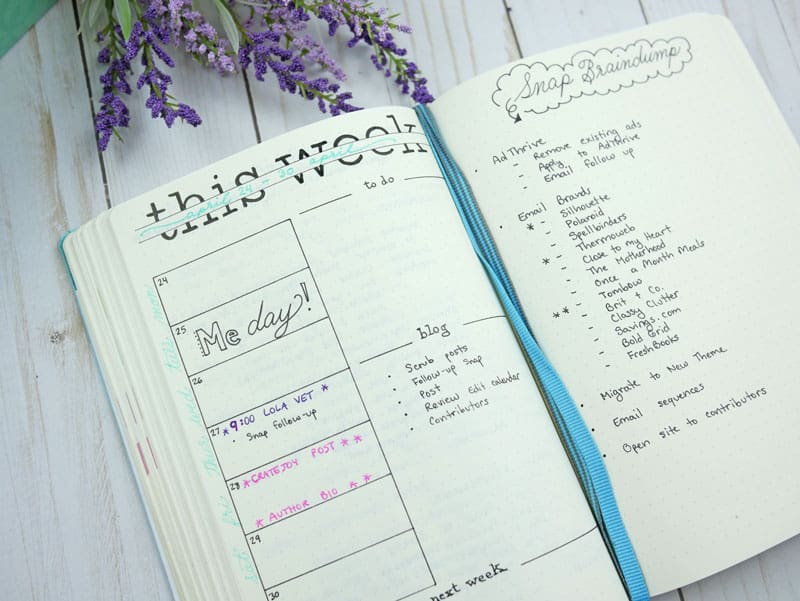 this week
april 24 - 30 april
to do
mon
24
tue
25
Me day!
wed
26
thur
27
*9:00 LOLA VET *
• Snap follow-up
fri
28
*CRATEJOY POST * *
* AUTHOR BIO A *
sat
29
30
blog
• Scrub posts
• Follow-up Snap
• Post
• Review Edit calendar
• Contributors
next week
Snap Braindump
• AdThrive
- Remove existing ads
- Apply to AdThrive
- Email follow up
• Email Brands
* - Silhouette
- Polaroid
- Spellbinders
* - Thermoweb
- Close to my Heart
- The Motherhood
- Once a Month Meals
- Tombow
** - Brit + Co.
- Classy Clutter
- Savings.com
- Bold Grid
- FreshBooks
• Migrate to New Theme
• Email sequences
• Open site to contributors